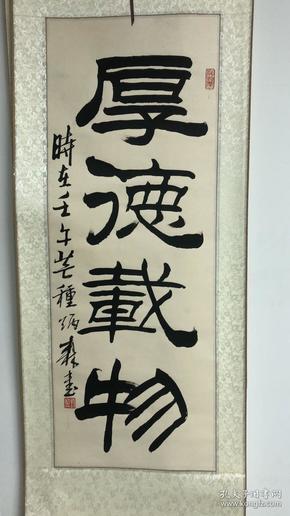 厚德載物
時在壬午芒種炳森書
孔夫子旧书网